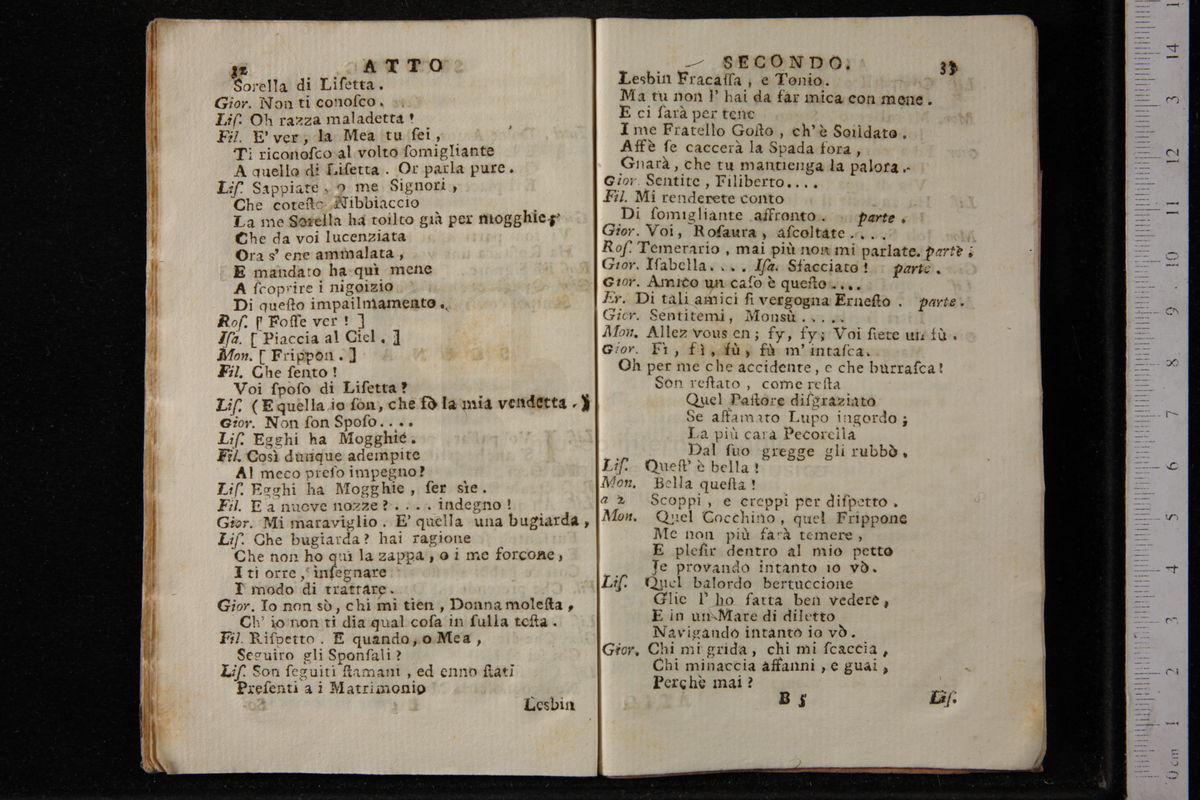 32 ATTO
Sorella di Liſetta.
Gior. Non ti conoſco.
Liſ. Oh razza maladetta!
Fil. E' ver, la Mea tu ſei,
Ti riconoſco al volto ſomigliante
A quello di Liſetta. Or parla pure.
Liſ. Sappiate, o me Signori,
Che coteſto Nibbiaccio
La me Sorella ha toilto già per mogghie;
Che da voi lucenziata
Ora s' ene ammalata,
E mandato ha quì mene
A ſcoprire i nigoizio
Di queſto impailmamento.
Roſ. [ Foſſe ver! ]
Iſa. [ Piaccia al Ciel. ]
Mon. [ Frippon. ]
Fil. Che ſento!
Voi ſpoſo di Liſetta?
Liſ. (E quella io ſon, che fò la mia vendetta.)
Gior. Non ſon Spoſo....
Liſ. Egghi ha Mogghie.
Fil. Così dunque adempite
Al meco preſo impegno?
Liſ. Egghi ha Mogghie, ſer sìe.
Fil. E a nuove nozze?.... indegno!
Gior. Mi maraviglio. E' quella una bugiarda,
Liſ. Che bugiarda? hai ragione
Che non ho quì la zappa, o i me forcone,
I ti orre, inſegnare
I modo di trattare.
Gior. Io non sò, chi mi tien, Donna moleſta,
Ch' io non ti dia qual coſa in ſulla teſta.
Fil. Riſpetto. E quando, o Mea,
Seguiro gli Sponſali?
Liſ. Son ſeguiti ſtamani, ed enno ſtati
Preſenti a i Matrimonio
Lesbin
SECONDO. 33
Lesbin Fracaſſa, e Tonio.
Ma tu non l' hai da far mica con mene.
E ci ſarà per tene
I me Fratello Goſto, ch' è Soildato.
Affè ſe caccerà la Spada fora,
Gnarà, che tu mantienga la palora.
Gior. Sentite, Filiberto....
Fil. Mi renderete conto
Di ſomigliante affronto. parte.
Gior. Voi, Roſaura, aſcoltate....
Roſ. Temerario, mai più non mi parlate. parte;
Gior. Iſabella.... Iſa. Sfacciato! parte.
Gior. Amico un caſo è queſto....
Er. Di tali amici ſi vergogna Erneſto. parte.
Gior. Sentitemi, Monsù.....
Mon. Allez vous en; fy, fy; Voi ſiete un fù.
Gior. Fì, fì, fù, fù m' intaſca.
Oh per me che accidente, e che burraſca!
Son reſtato, come reſta
Quel Paſtore diſgraziato
Se affamato Lupo ingordo;
La più cara Pecorella
Dal ſuo gregge gli rubbò.
Liſ. Queſt' è bella!
Mon. Bella queſta!
a 2 Scoppi, e creppi per diſpetto.
Mon. Quel Cocchino, quel Frippone
Me non più farà temere,
E pleſir dentro al mio petto
Je provando intanto io vò.
Liſ. Quel balordo bertuccione
Glie l' ho fatta ben vedere,
E in un Mare di diletto
Navigando intanto io vò.
Gior. Chi mi grida, chi mi ſcaccia,
Chi minaccia affanni, e guai,
Perchè mai?
B 5 Liſ.